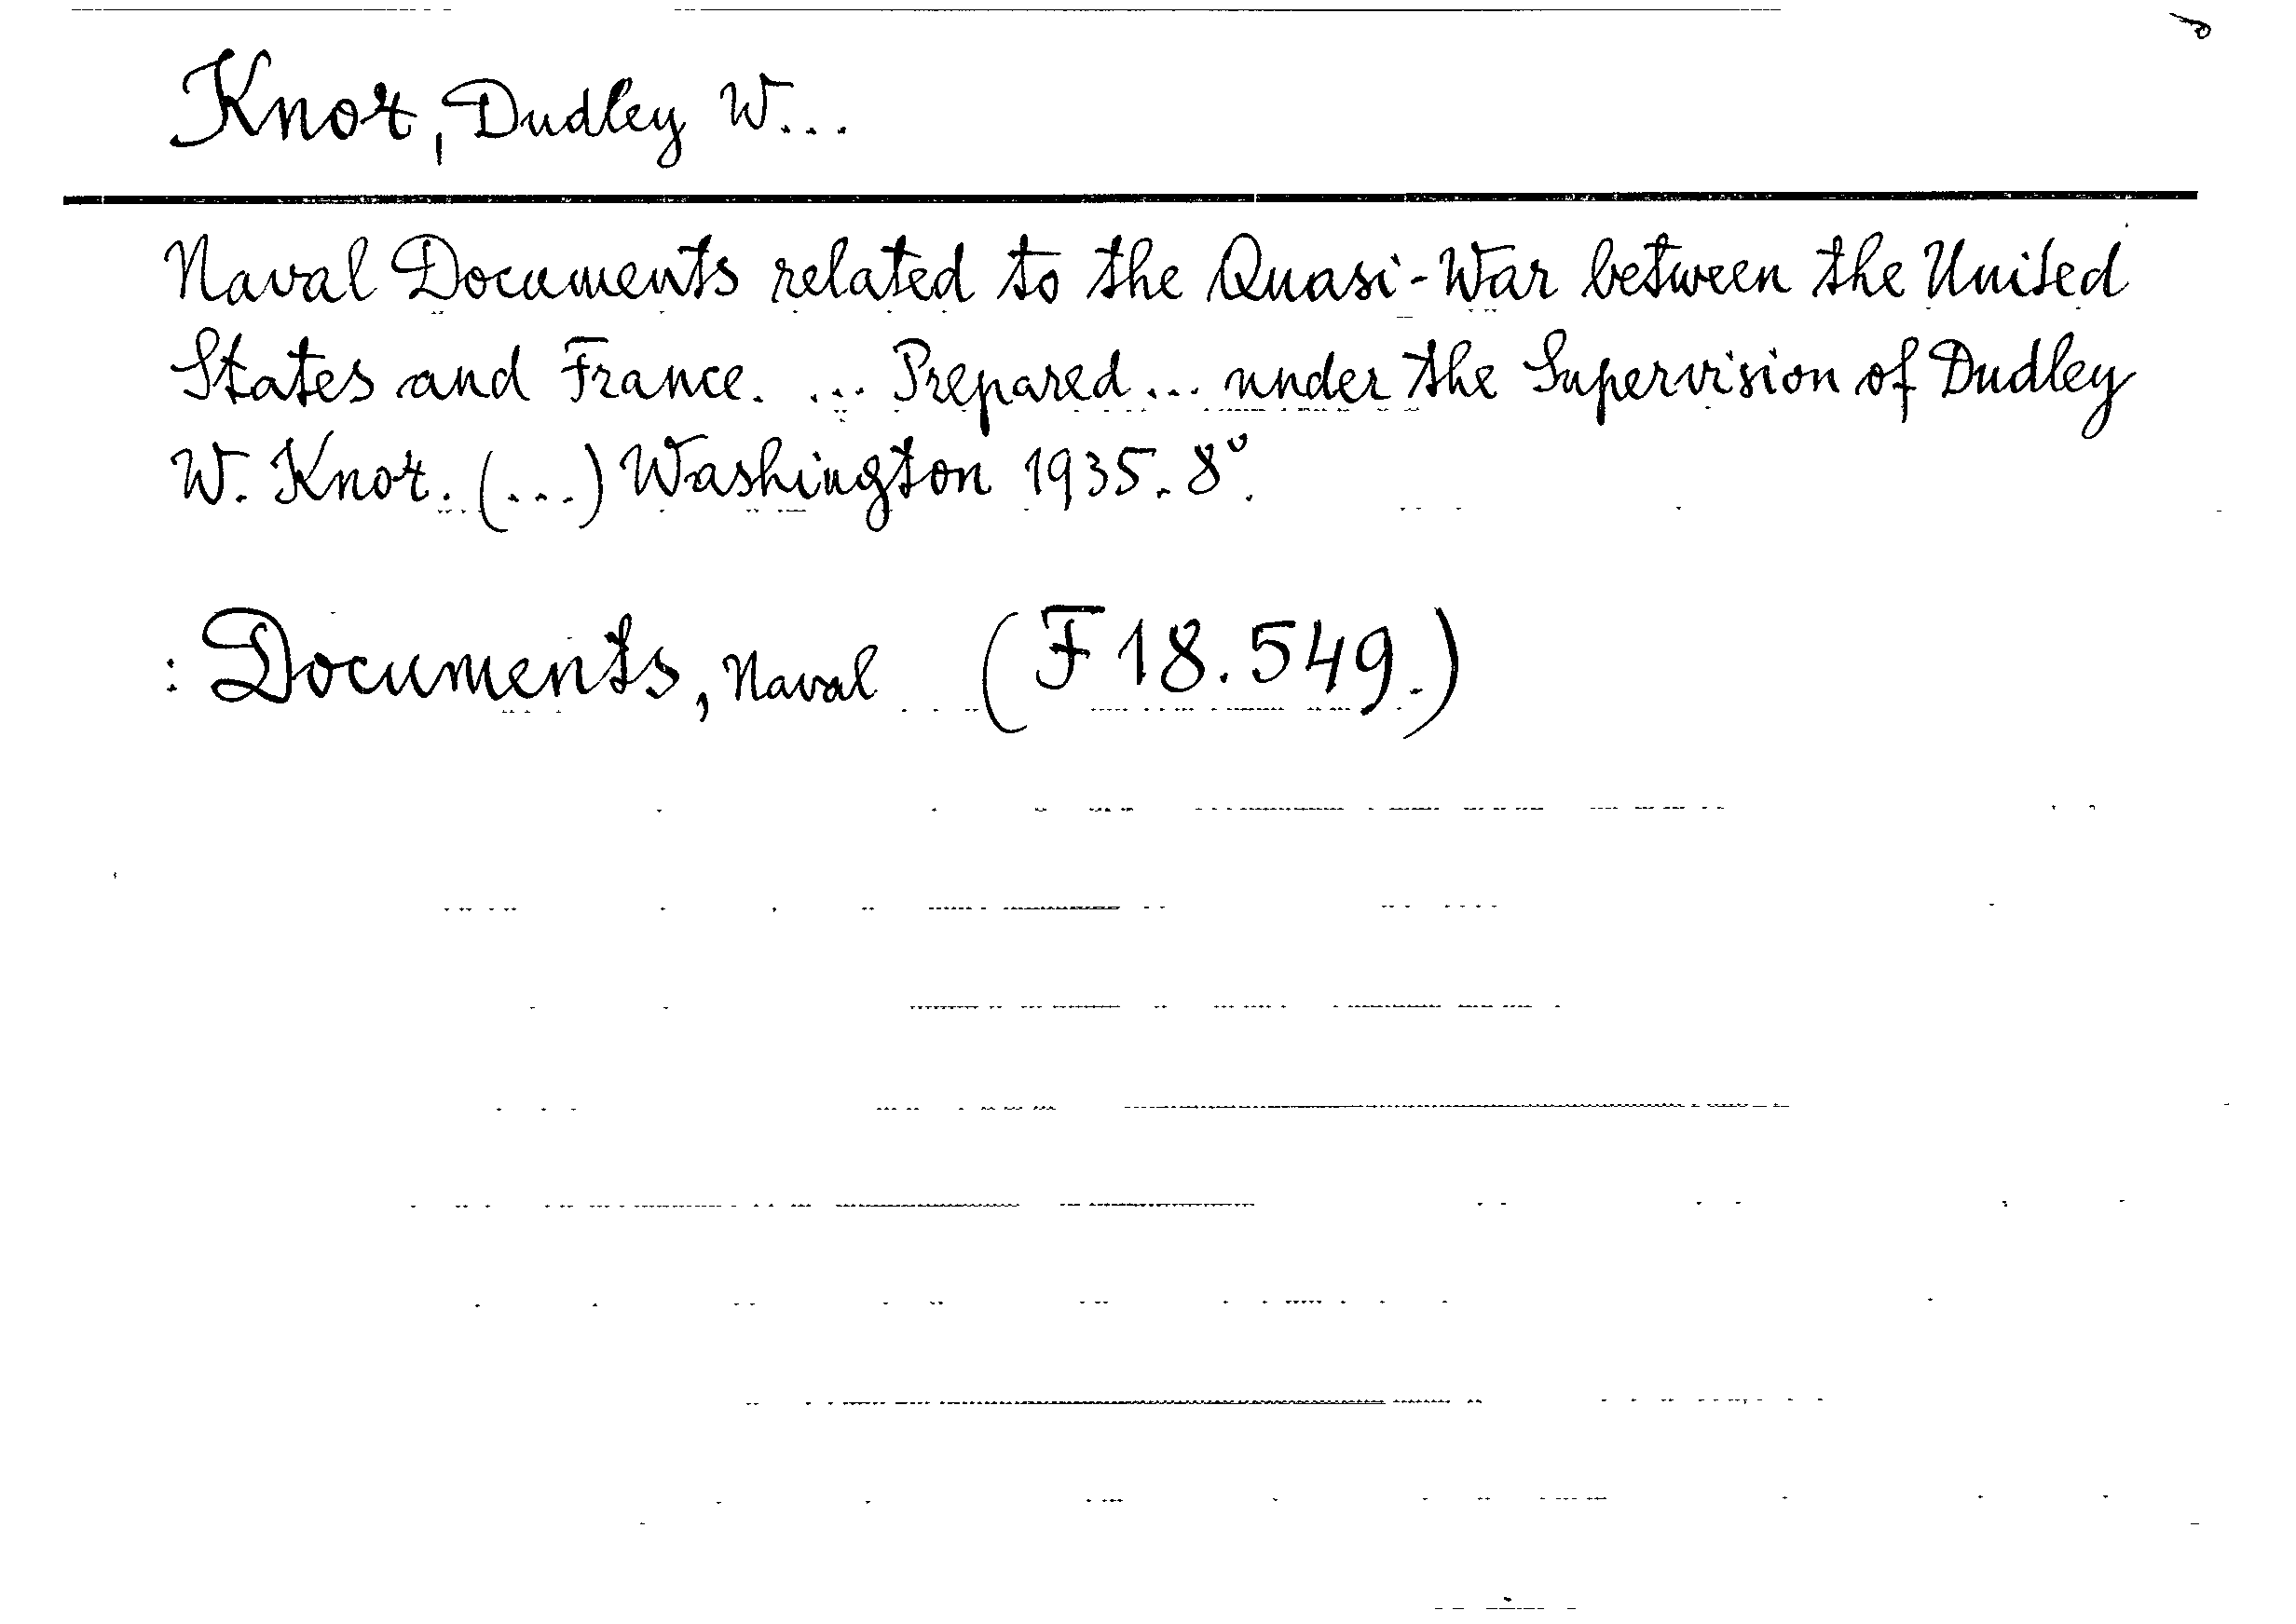 Knox, Dudley W...
Naval Documents related to the Quasi-War between the United
States and France. ... Prepared ... under the Supervision of Dudley
W. Knox. (...) Washington 1935. 8°.
: Documents, Naval (F 18.549.)